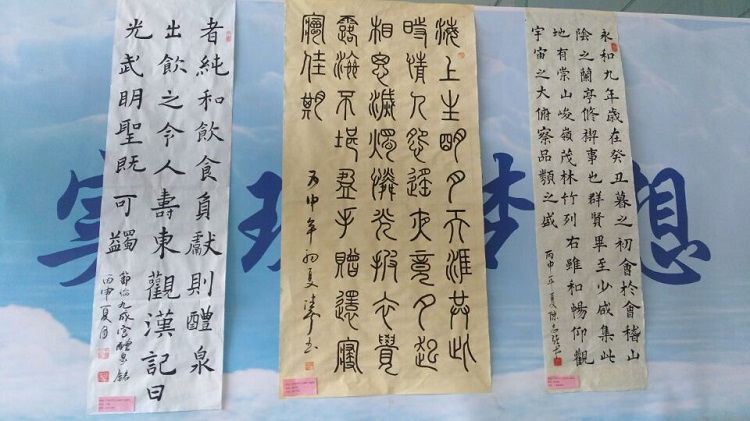 者純和飲食貞獻則醴泉
出飲之令人壽東觀漢記曰
光武明聖既可蠲
節臨九成宮醴泉銘
丙申夏月
海上生明月天涯共此
時情人怨遙夜竟夕起
相思滅燭憐光披衣覺
露滋不堪盈手贈還寢
夢佳期
丙申年初夏 书
永和九年歲在癸丑暮之初會於會稽山
陰之蘭亭修禊事也群賢畢至少咸集此
地有崇山峻嶺茂林竹列右雖和暢仰觀
宇宙之大俯察品類之盛
丙申年夏陳
想